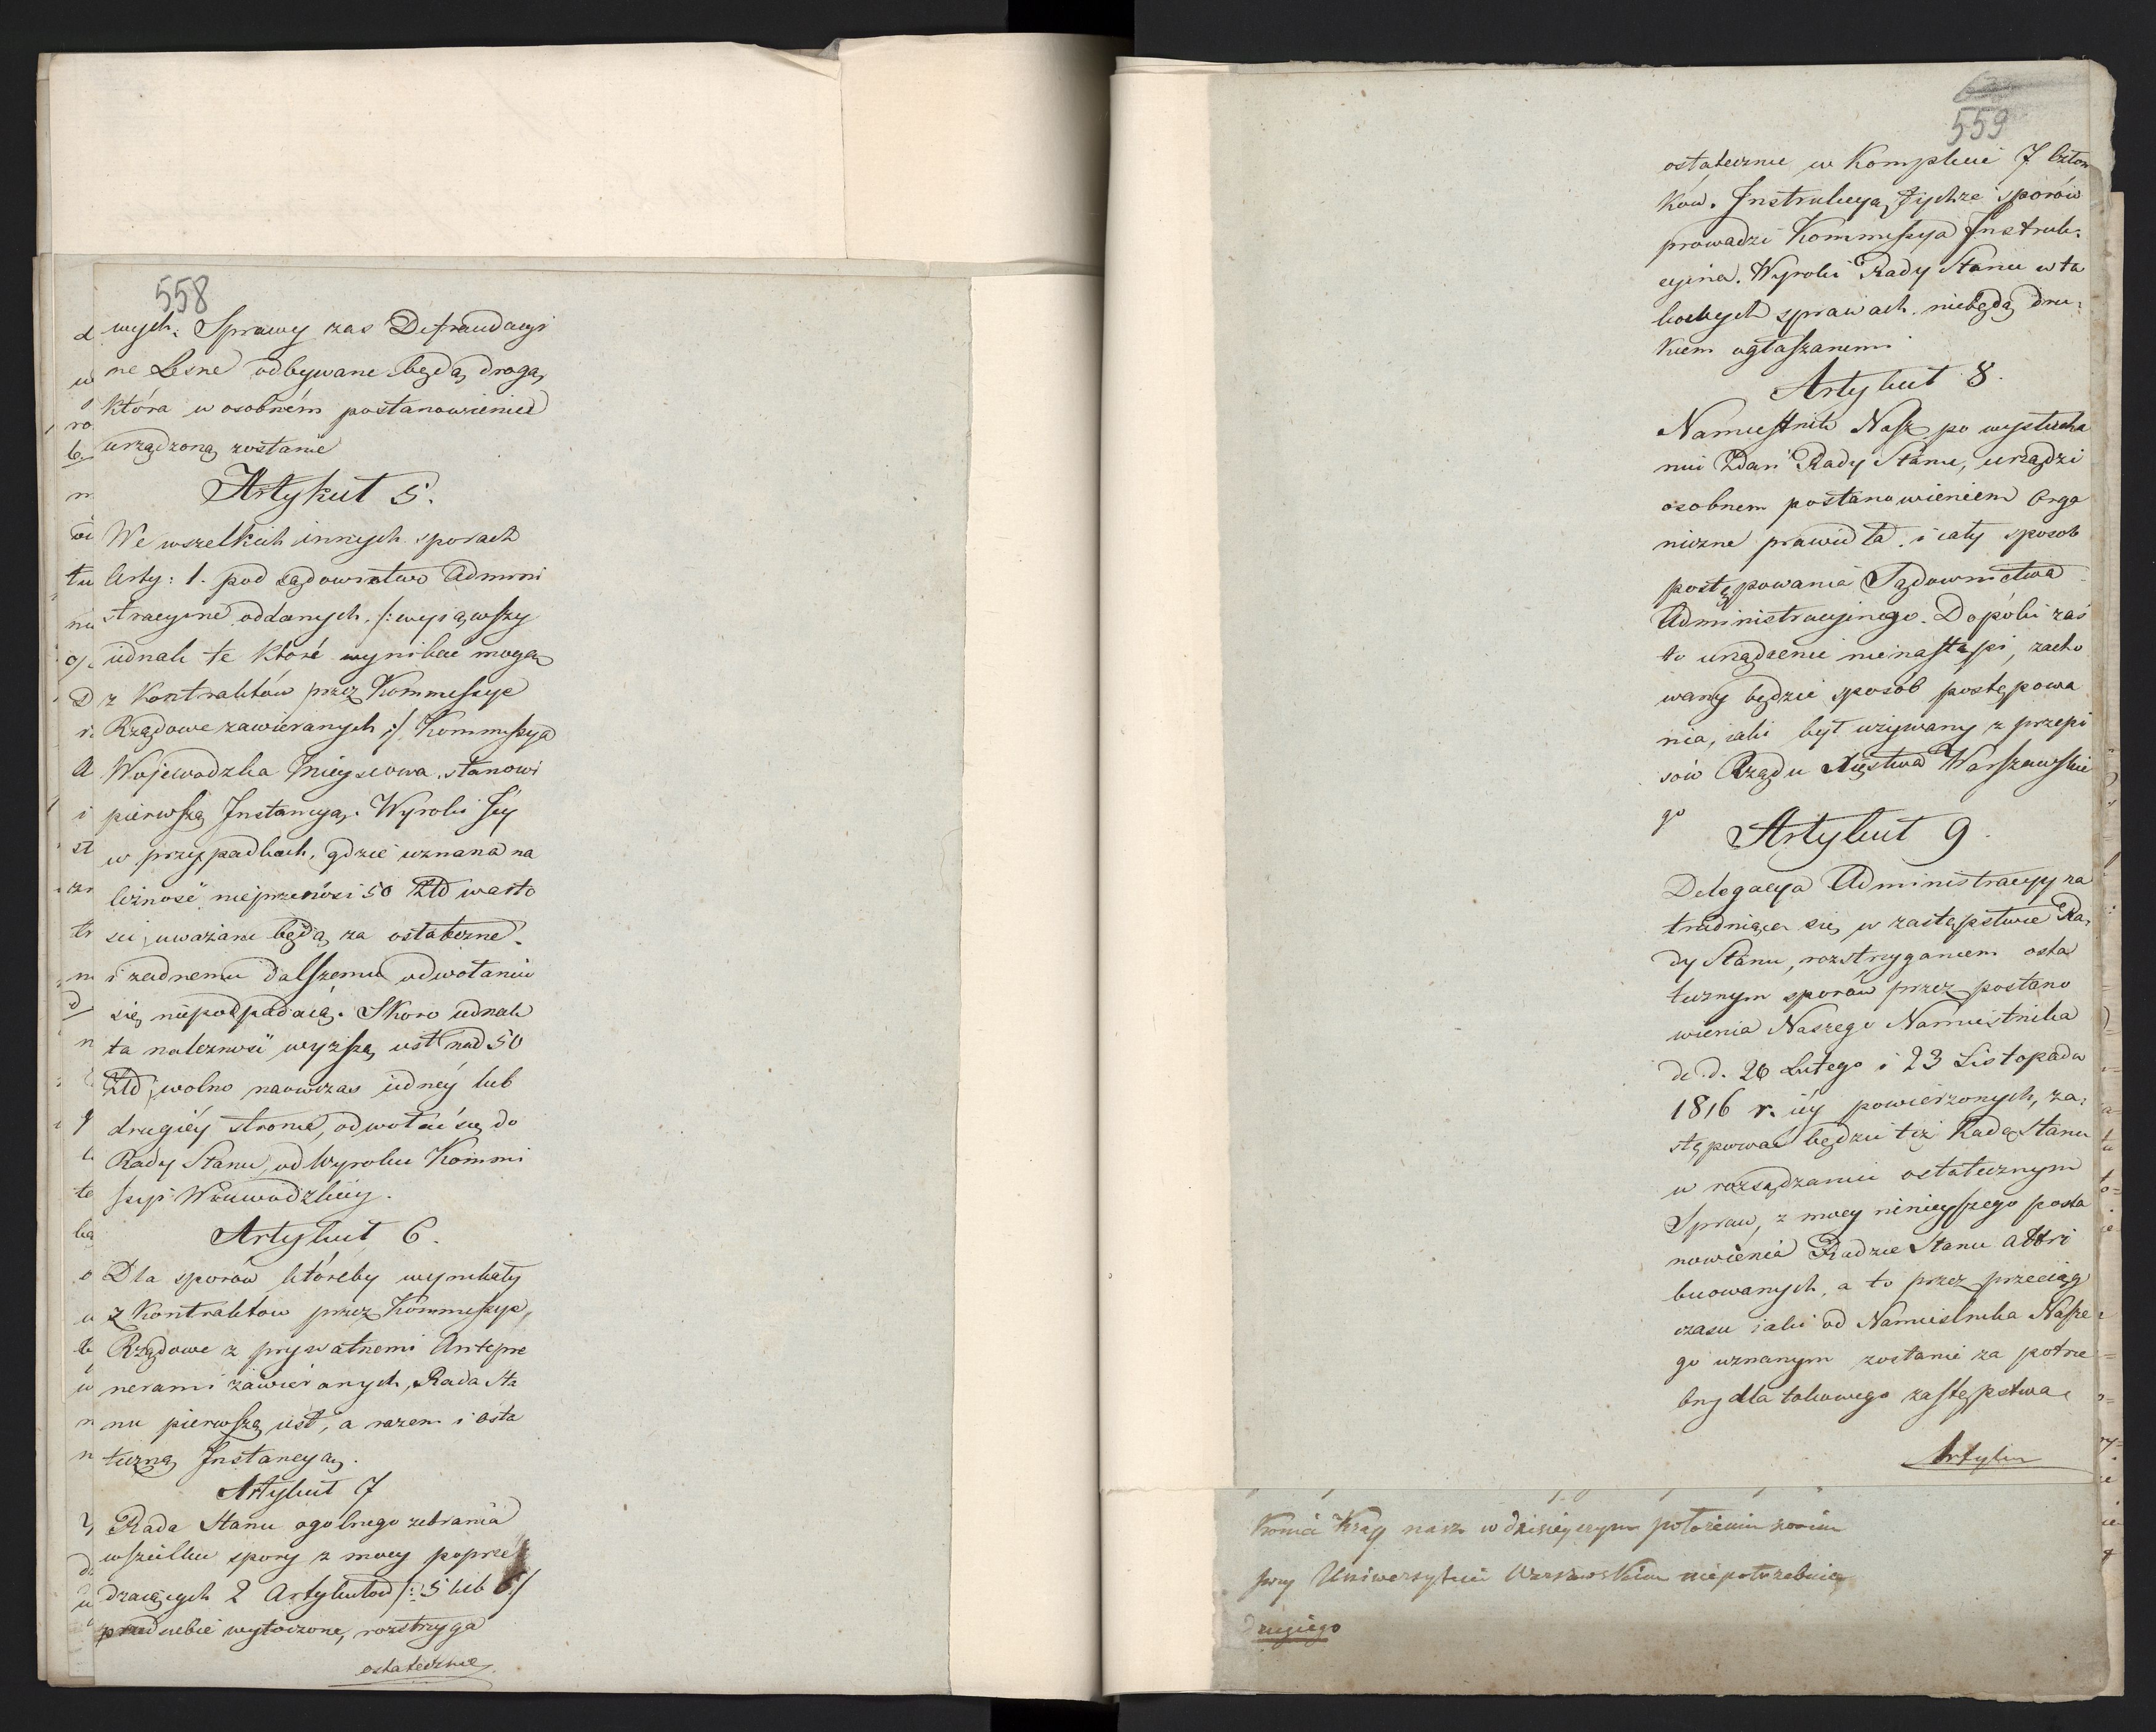 558
wych. Sprawy zas Defraudacyi
ne Lesne odbywane będą drogą,
która w osobném postanowieniu
urządzoną zostanie
Artykuł 5.
We wszelkich innych sporach
Arty: 1. pod sądownictwo Admini
stracyine oddanych, /: wyiąwszy
iednak te które wynikać mogą
z Kontraktów przez Kommissye
Rządowe zawieranych :/ Kommissya
Wojewodzka mieyscowa stanowi
pierwszą Instancyą. Wyroki Jéy
w przypadkach, gdzie uznana na
leżność nieprzenósi 50 Złł warto
sci, uważane będą za ostateczne
i zadnemu dalszemu odwołaniu
się niepodpadaią. Skoro iednak
ta należność wyższą iest nad 50
Złł, wolno naowczas iednéy lub
drugiéy stronie, odwołać się do
Rady Stanu, od Wyroku Kommi
ssyi Woiewodzkiey.
Artykuł 6.
Dla sporów któreby wynikały
z Kontraktow przez Kommissye,
Rządowe z prywatnemi Antepre
nerami zawieranych, Rada Sta
nu pierwszą iest, a razem i osta
teczną Instancyą.
Artykuł 7
Rada Stanu ogolnego zebrania
wszelkie spory z mocy poprze
dzaiących 2 Artykułow /: 5 lub 6 :/
przed siebie wytoczone, rozstrzyga
ostatecznie
559
ostatecznie w Komplecie 7 Człon
ków. Instrukcyą tychze sporów
prowadzi Kommissya Instruk:
cyina. Wyroki Rady Stanu w ta
kowych sprawach niebędą dru:
kiem ogłaszanemi
Artykuł 8.
Namiestnik Nasz po wysłucha
niu Zdań Rady Stanu, urządzi
osobnem postanowieniem Orga
niczne prawidła i cały sposob
postępowania Sądownictwa
Administracyjnego. Dopóki zaś
to urządzenie nienastąpi, zacho
wany będzie sposób postępowa
nia, iaki był używany z przepi
sów Rządu Xięstwa Warszawskie
go
Artykuł 9.
Delegacya Administracyy za
trudniąca się w zastępstwie Ra,
dy Stanu, rozstrzyganiem osta
tecznym sporów przez postano
wienia Naszego Namiestnika
de d. 26 Lutego i 23 Listopada
1816 r. iéy powierzonych, za:
stępować będzie też Radę Stanu
w rozsądzaniu ostatecznym
Spraw, z mocy ninieyszego posta
nowienia Radzie Stanu attri
buowanych, a to przez przeciąg
czasu iaki od Namiestnika Nasze
go uznanym zostanie za potrze
bny dla takowego zastępstwa.
Artykuł
Kray nasz w dzisieyszym położeniu
przy Uniwersytecie Warszawskim niepotrzebuie
drugiego